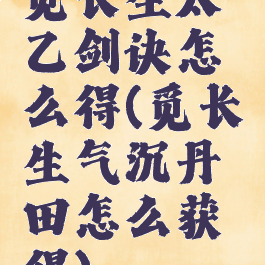 觅长生太
乙剑诀怎
么得(觅长
生气沉丹
田怎么获
得)